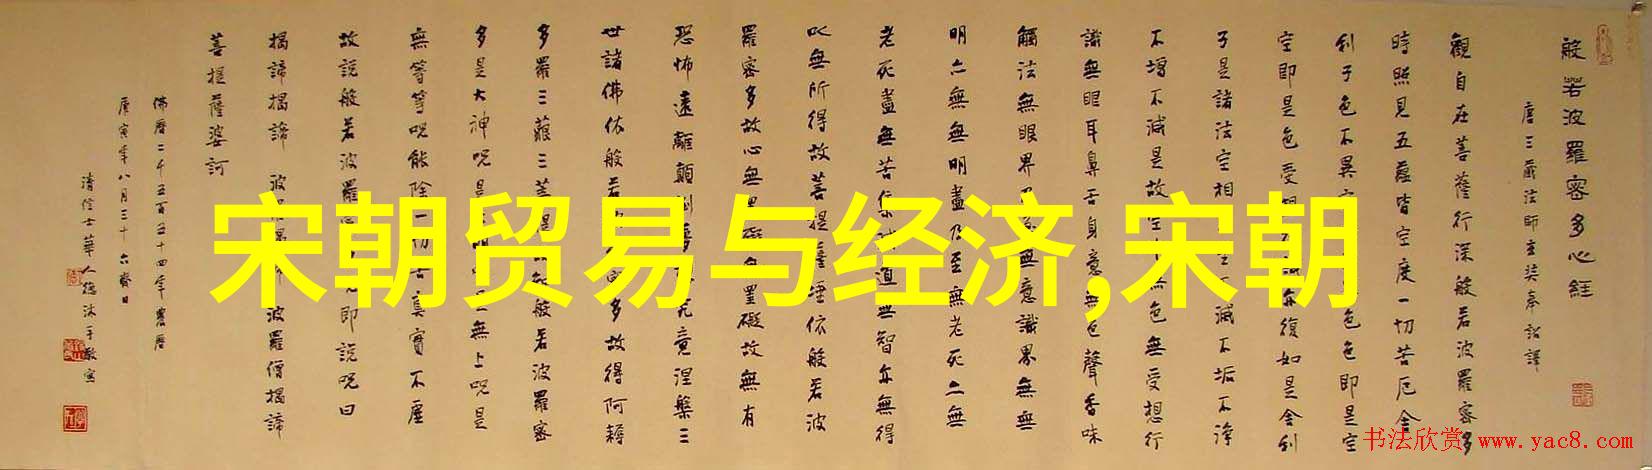 般若波羅蜜多心経
唐三藏法師玄奘奉詔譯
觀自在菩薩行深般若波羅蜜多
時照見五蘊皆空度一切苦厄舍
利子色不異空色色即是空
空即是色受想亦復如是舍利
子是諸法空相不滅不垢不淨
不增不減是故空中無色無受想行
識無眼耳鼻舌身意無色聲香味
觸法無眼界無意識界無無
明亦無無明盡乃至無老死亦無
老死盡無苦道無智亦無得
以無所得故菩提薩埵依般若波
羅蜜多故心無罣礙無罣礙故無有
恐怖遠離顛倒究竟涅槃三
世諸佛依般若多故得阿耨
多羅三藐三菩提般若波羅蜜
多是大神咒是無上咒是
無等等咒能除一切苦真實不虛
故說般若波羅即說咒曰
揭諦揭諦 波羅揭諦 波羅僧揭諦
菩提薩婆訶
佛曆二千五百五十四年農曆
庚寅年八月三十六齋日
清信士華人德沐手敬寫
宋朝贸易与经济,宋朝
书法欣赏 www.yac8.com